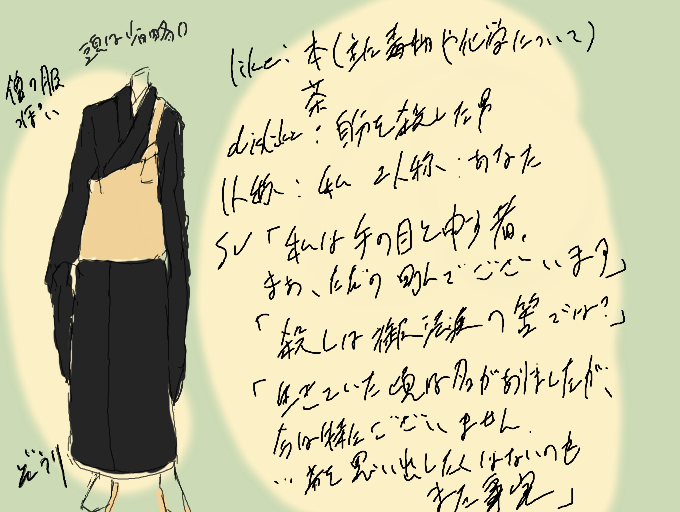 頭は省略()
僧の服
っぽい
ぞうり
like: 本(主に毒物や化学について)
茶
dislike: 自分を殺した男
1人称: 私 2人称: あなた
SV「私は手の目と申す者。
まぁ、ただの
でございます」
「殺しは御法度の筈では?」
「生きていた頃は名がありましたが、
今は特にございません。
…名を思い出したくはないのも
また事実」